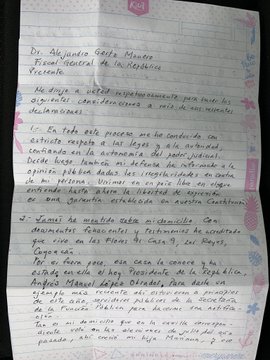 Dr. Alejandro Gertz Manero
Fiscal General de la República
Presente
Me dirijo a usted respetuosamente para hacer las
siguientes consideraciones a raíz de sus recientes
declaraciones
1.- En todo este proceso me he conducido con
estricto respeto a las leyes y a la autoridad,
confiando en la autonomía del poder judicial.
Desde luego también mi defensa ha informado a la
opinión pública dadas las irregularidades en contra
de mi persona. Vivimos en un país libre que sigue
entiendo hasta ahora la libertad de expresión
es una garantía establecida en nuestra Constitución
2. Jamás he mentido sobre mi domicilio. Con
documentos fehacientes y testimonios he acreditado
que vivo en las Flores # Casa 9, Los Reyes,
Coyoacán.
Por si fuera poco, esa casa la conoce y ha
estado en ella el hoy Presidente de la República,
Andrés Manuel López Obrador, para darle un
ejemplo más reciente ahí estuvieron a principios
de este año, servidores públicos de la Secretaría
de la Función Pública para hacerme una
Tan es mi domicilio que en la casilla
voto en las elecciones de julio del
pasado, ahí creció mi hija Mariana, y